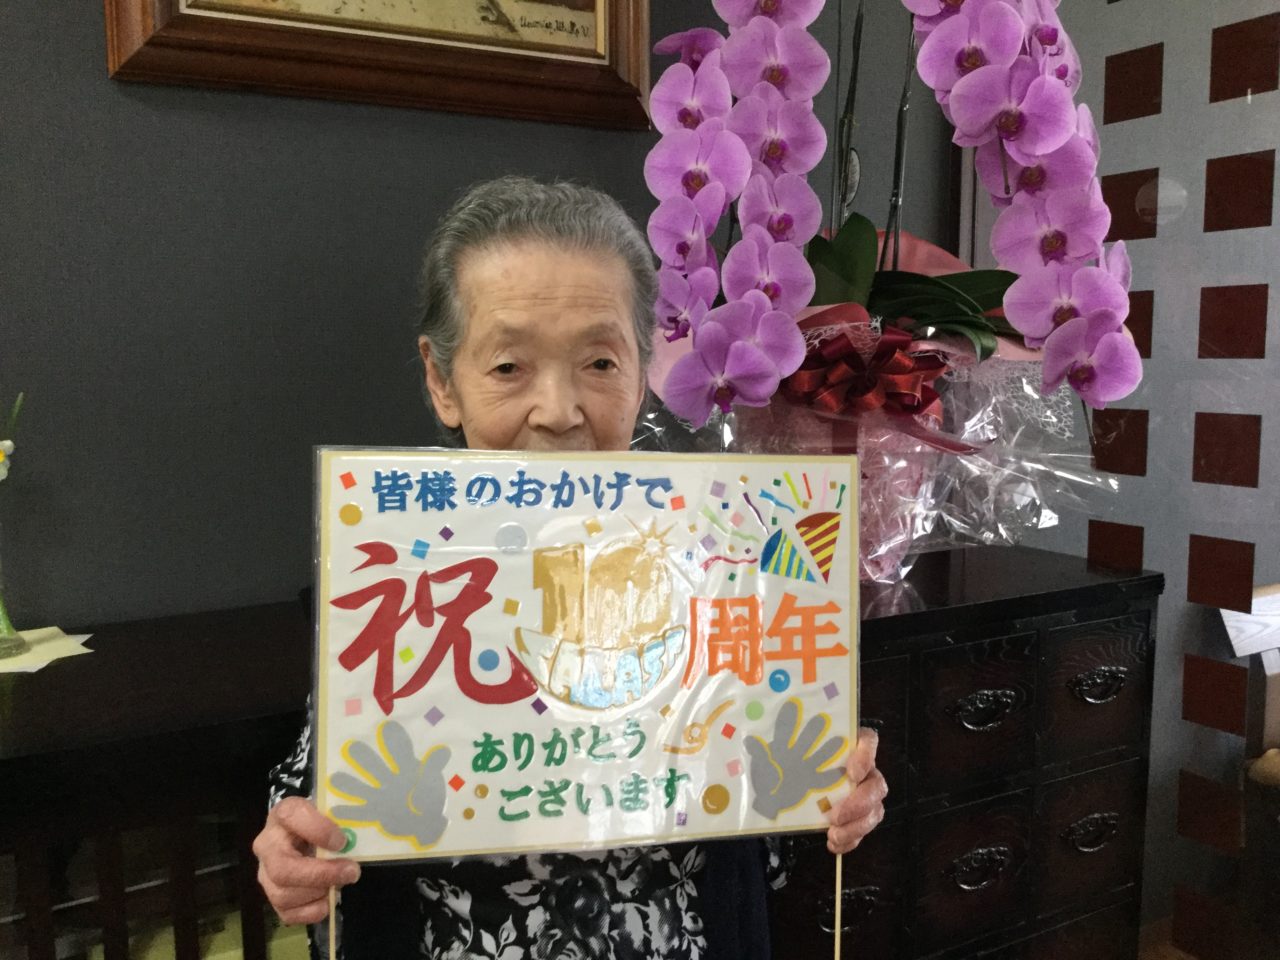 皆様のおかげで
祝10周年
ありがとう
ございます